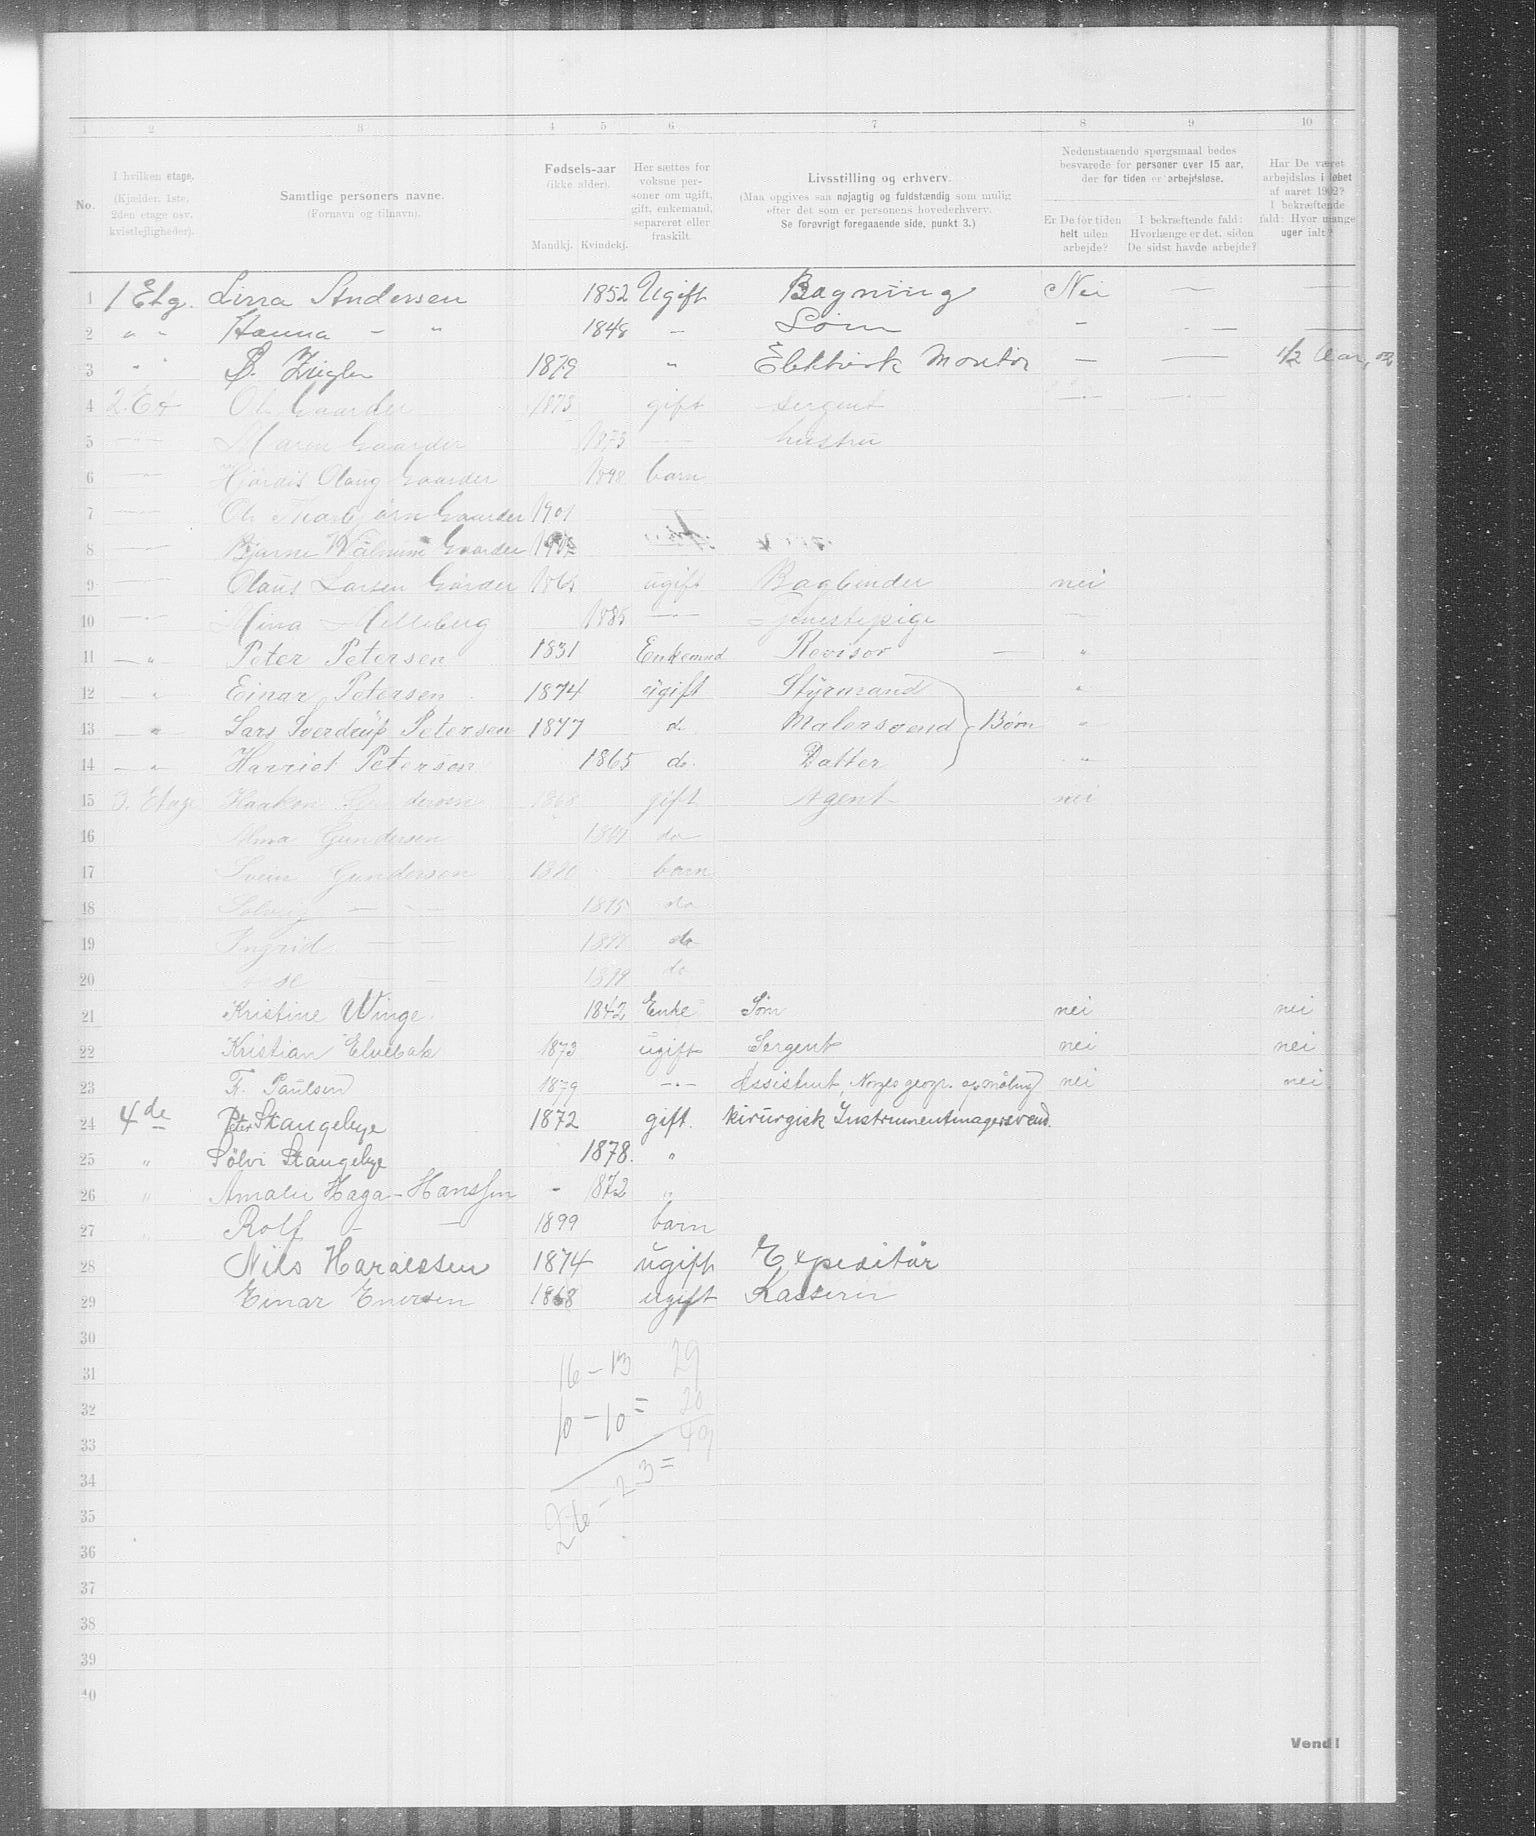 1 2 3 4 5 6 7 8 9 10
No.
I hvilken etage, (Kjælder, 1ste, 2den etage osv. kvistlejligheder).
Samtlige personers navne. (Fornavn og tilnavn).
Fødsels-aar (ikke alder). Mandkj. Kvindekj.
Her sættes for voksne personer om ugift, gift, enkemand, separeret eller fraskilt.
Livsstilling og erhverv. (Maa opgives saa nøjagtig og fuldstændig som mulig efter det som er personens hovederhverv. Se forøvrigt foregaaende side, punkt 3.)
Nedenstaaende spørgsmaal bedes besvarede for personer over 15 aar, der for tiden er arbejdsløse.
Er De for tiden helt uden arbejde?
I bekræftende fald: Hvorlænge er det, siden De sidst havde arbejde?
Har De været arbejdsløs i løbet af aaret 1902? I bekræftende fald: Hvor mange uger ialt?
1 1 Etg. Lina Andersen 1852 Ugift Bagning Nei — —
2 " " Hanna — " 1848 — Søm - - — —
3 " " Ziegler 1879 " Elektrisk Montør — — 1/2 Aar,
4 2. Et Ole Gaarder 1873 gift Sergent
5 —"— Maren Gaarder 1873 —"— hustru
6 —"— Hjördis Olaug Gaarder 1898 barn
7 —"— Ole Thorbjørn Gaarder 1901
8 —"— Bjarne Gaarder
9 —"— Olaus Larsen Gårder 1865 ugift Bogbinder nei
10 —"— Mina Melleberg 1885 —"— Tjenestepige —"—
11 —"— Peter Petersen 1831 Enkemnd Revisor — "
12 —"— Einar Petersen 1874 ugift Styrmand "
13 —"— Lars Sverdrup Petersen 1877 d. Malersvend Børn "
14 —"— Harriet Petersen 1865 do. Datter "
15 3. Etage Haakon Gundersen 1868 gift Agent nei
16 Alma Gundersen do
17 Svein Gundersen 1890 barn
18 Solveig — " — 1895 do
19 Ingrid — — do
20 — — do
21 Kristine Winge. 1842 Enke Søm nei nei
22 Kristian Elvebak 1873 ugift Sergent nei nei
23 F. Paulsen 1879 —"— Assistent, Norges geogr. opmåling nei nei.
24 4de Peter Stangebye 1872 gift. kirurgisk Instrumentmagersvend.
25 " Sölvi Stangebye 1878. "
26 " Amalie Haga-Hanssen - 1872 "
27 " Rolf - — 1899 barn
28 Nils Haraldsen 1874 ugift Expeditör
29 Einar Enersen 1868 ugift Kasserer
30
31 16 — 13 29
32 10 — 10 = 20
33 49
34 26 — 23 =
35
36
37
38
39
40
Vend!